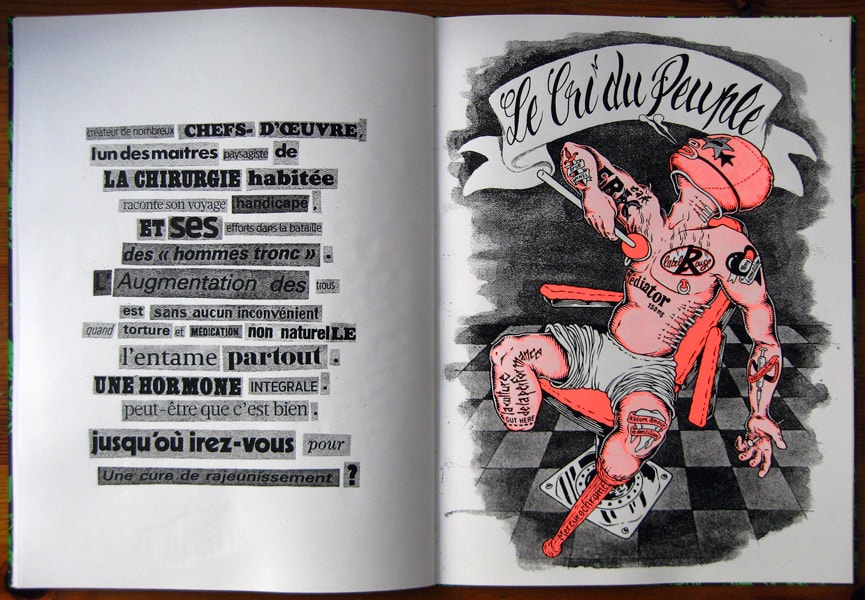 créateur de nombreux CHEFS- D'ŒUVRE,
l un des maîtres paysagiste de
LA CHIRURGIE habitée
raconte son voyage handicapé.
ET ses efforts dans la bataille
des « hommes tronc ».
L'Augmentation des trous
est sans aucun inconvénient
quand torture et MÉDICATION non naturelLE
l'entame partout.
UNE HORMONE INTEGRALE.
peut-être que c'est bien.
jusqu'où irez-vous pour
Une cure de rajeunissement ?
Le Cri du Peuple
label R Rouge
Médiator
150 mg
la culture
de la performance
CUT HERE
Mercurochrome